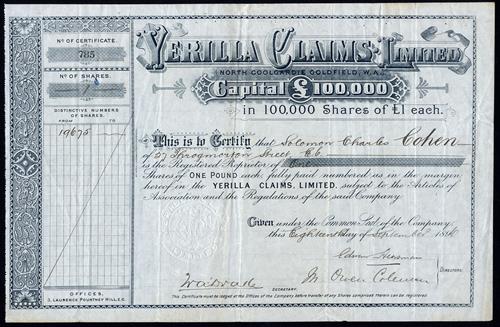 No. OF CERTIFICATE.
785
No. OF SHARES.
DISTINCTIVE NUMBERS
OF SHARES.
FROM TO
19675
OFFICES,
3, LAURENCE POUNTNEY HILL, E.C.
YERILLA CLAIMS, LIMITED
NORTH COOLGARDIE GOLDFIELD, W.A.
Capital £100,000
in 100,000 Shares of £1 each.
This is to Certify that Solomon Charles Cohen
of 27 Throgmorton Street E.C.
is the Registered Proprietor of
Shares of ONE POUND each, fully paid numbered as in the margin
hereof in the YERILLA CLAIMS, LIMITED, subject to the Articles of
Association and the Regulations of the said Company.
Given under the Common Seal of the Company,
this Eighteenth day of September 189
M. Owen Coleman
DIRECTORS.
SECRETARY.
This Certificate must be lodged at the Offices of the Company before transfer of any Shares comprised therein can be registered.